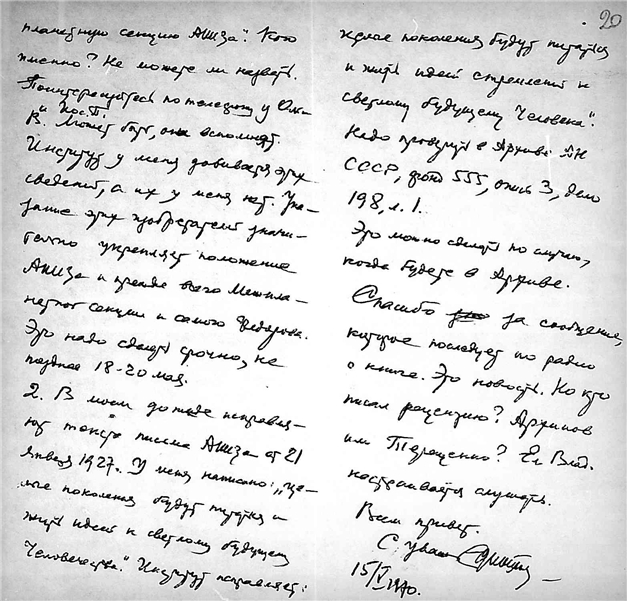 20
планетную секцию АИИЗа". Кого
именно? Не можете ли назвать.
Поинтересуйтесь по телефону у Оль-
В. Может быть, она вспомнит.
Институт у меня добивается этих
сведений, а их у меня нет. Ука-
зание этих изобретателей значи-
тельно укрепляет положение
АИИЗа и прежде всего Межпла-
нетной секции и самого Федорова.
Это надо сделать срочно, не
позднее 18-20 мая.
2. В моем докладе исправля-
ют текст письма АИИЗа от 21
января 1927г. У меня написано: „це-
лые поколения будут питаться и
жить идеей к светлому будущему
Человечества." Институт исправляет:
целые поколения будут питаться
и жить идеей стремлений к
светлому будущему Человека".
Надо проверить в Архиве АН
СССР, фонд 555, опись 3, дело
198, л. 1.
Это можно сделать по случаю,
когда будете в Архиве.
Спасибо за сообщение,
которое последует по радио
о книге. Это новость. Но кто
писал рецензию? Архипов
или Терещенко? Ел. Влад.
настраивается слушать.
Вам привет.
С уваж.
15/V 1970.